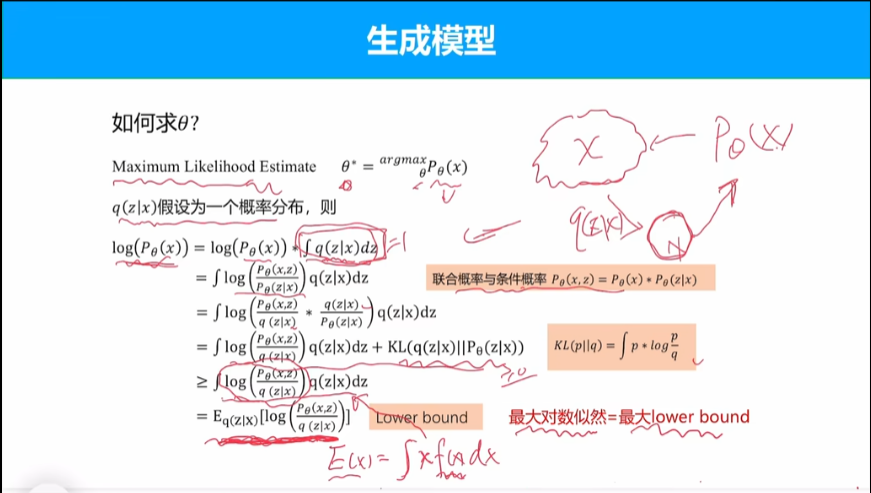 生成模型
如何求θ?
Maximum Likelihood Estimate θ* = argmax_θ P_θ(x)
q(z|x)假设为一个概率分布，则
log(P_θ(x)) = log(P_θ(x)) * ∫ q(z|x)dz =1
= ∫ log(P_θ(x,z)/P_θ(z|x)) q(z|x)dz
联合概率与条件概率 P_θ(x,z) = P_θ(x) * P_θ(z|x)
= ∫ log(P_θ(x,z)/q (z|x) * q(z|x)/P_θ(z|x)) q(z|x)dz
= ∫ log(P_θ(x,z)/q (z|x)) q(z|x)dz + KL(q(z|x)||P_θ(z|x))
≥0
KL(p||q) = ∫ p * log p/q
≥ ∫ log(P_θ(x,z)/q (z|x)) q(z|x)dz
= E_q(z|x)[log(P_θ(x,z)/q (z|x))]
Lower bound
最大对数似然=最大lower bound
E(x) = ∫ x f(x) dx
X
P_θ(X)
q(z|x)